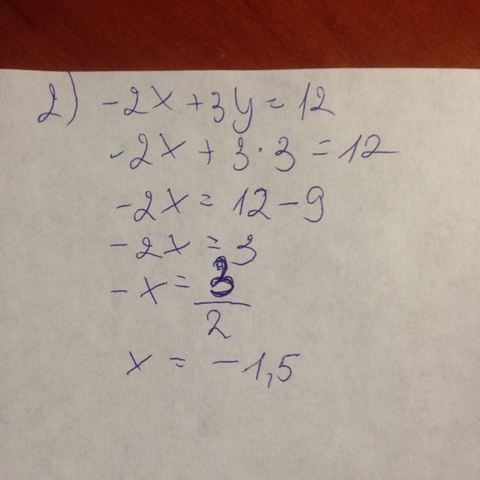 2) -2x + 3y = 12
-2x + 3 · 3 = 12
-2x = 12 - 9
-2x = 3
-x = 3/2
x = -1,5